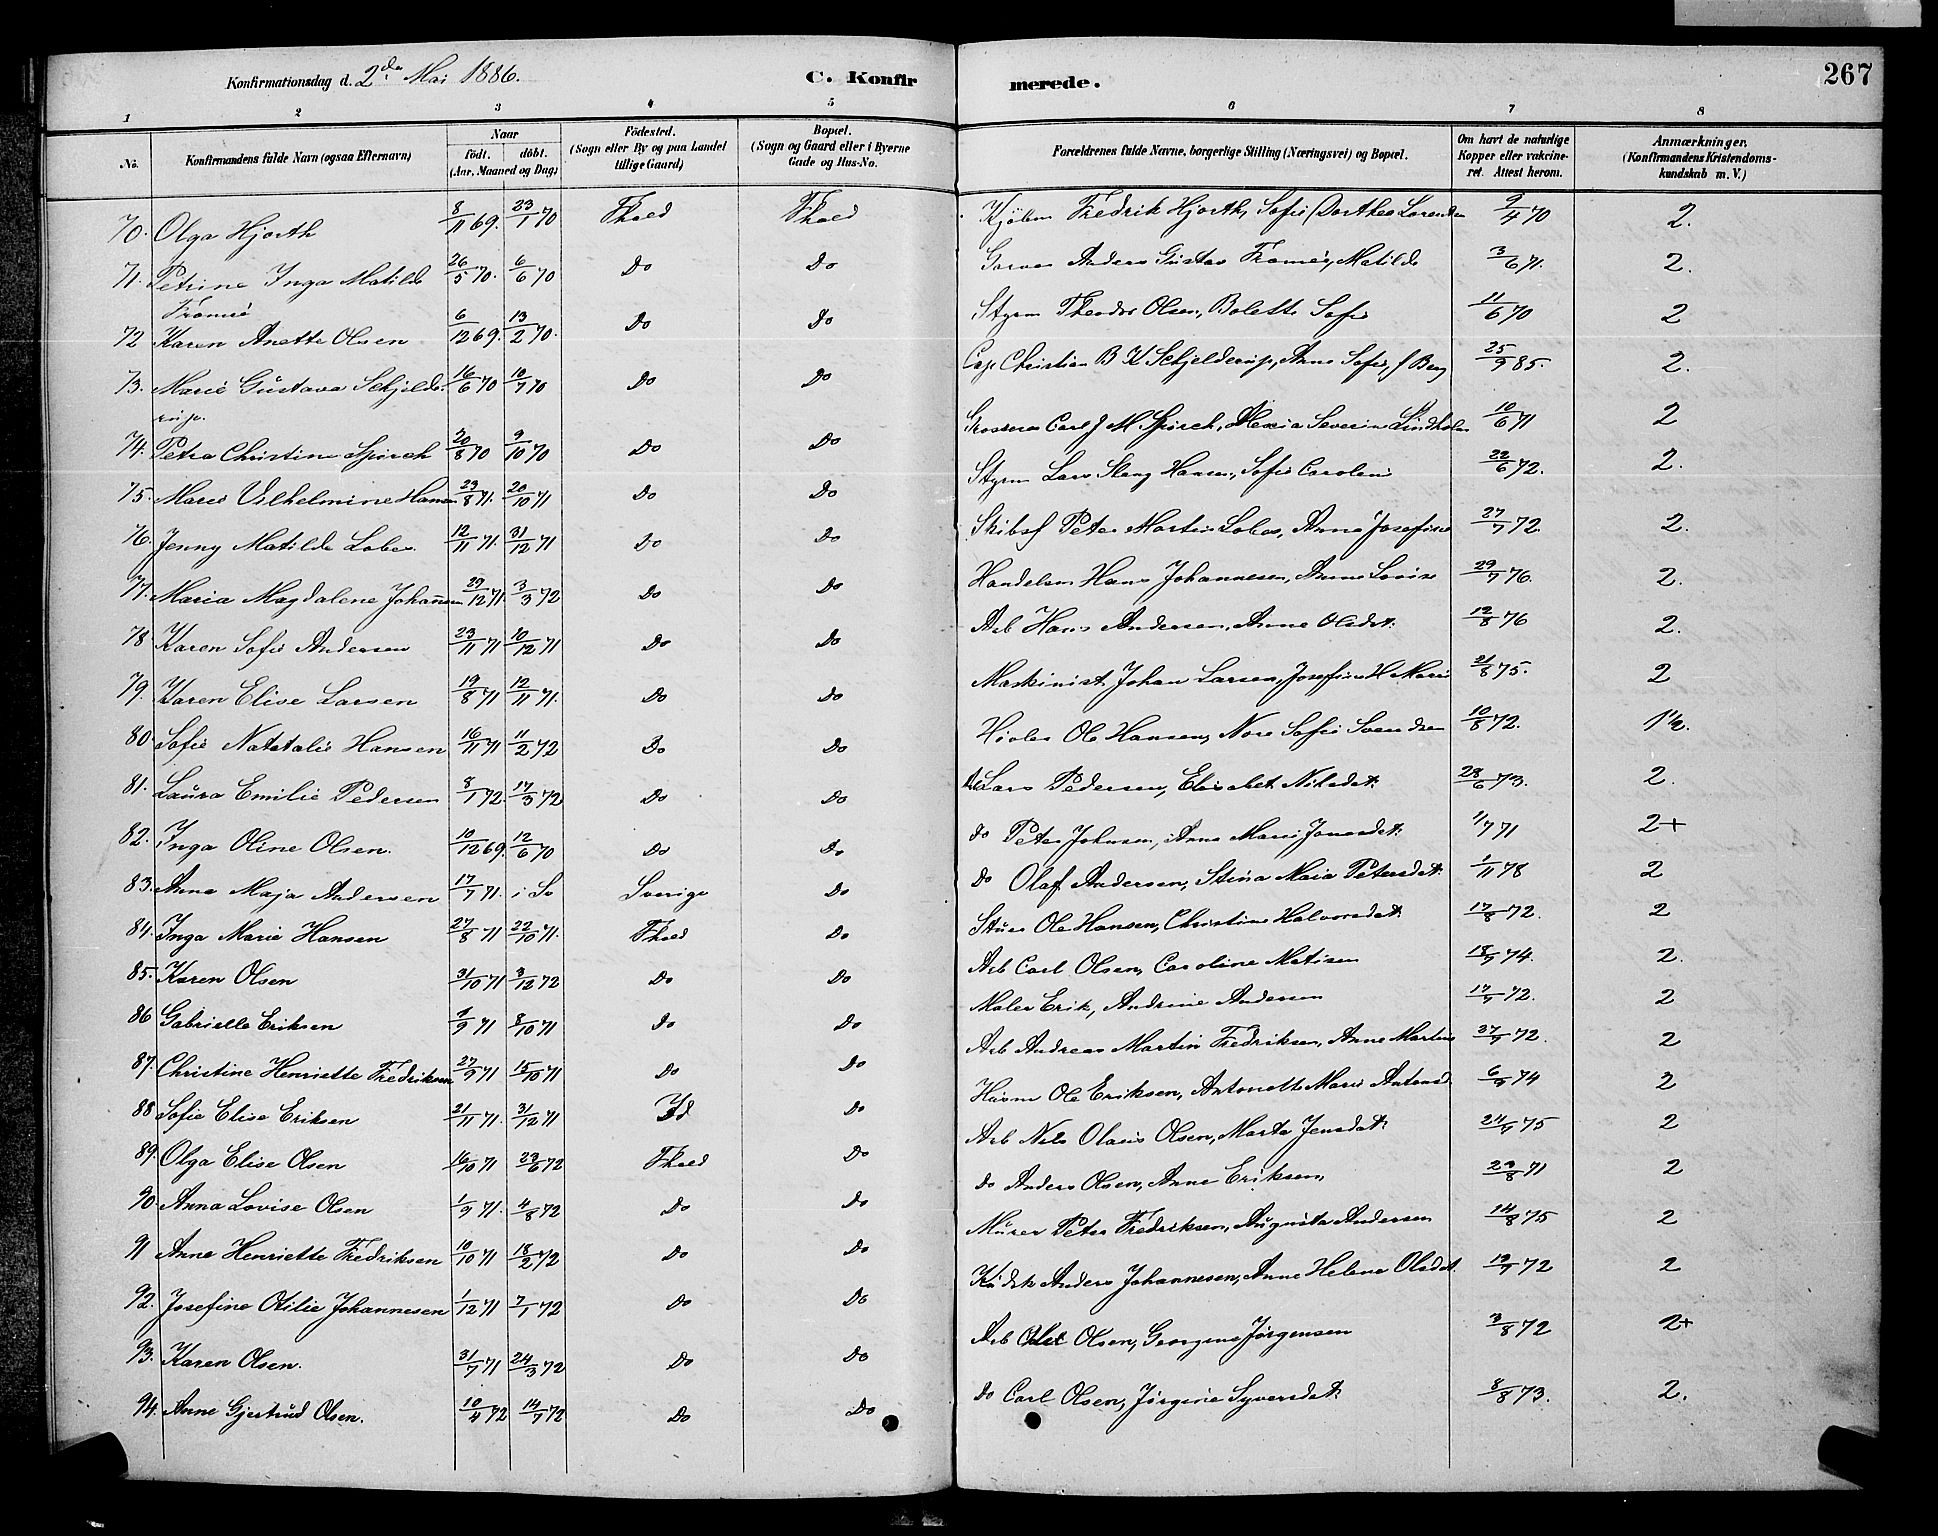 Konfirmationsdag d. 2den Mai 1886. C. Konfirmerede. 267
1 2 3 4 5 6 7 8
No. Konfirmandens fulde Navn (ogsaa Efternavn) Naar födt. döbt. (Aar, Maaned og Dag) Födested. (Sogn eller By og paa Landet tillige Gaard) Bopæl. (Sogn og Gaard eller i Byerne Gade og Hus-No. Forældrenes fulde Navne, borgerlige Stilling (Næringsvei) og Bopæl. Om havt de naturlige Kopper eller vakcineret. Attest herom. Anmærkninger. (Konfirmandens Kristendomskundskab m. V.)
70. Olga Hjorth 8/11 69. 23/1 70 Fhald Fhald Kjøbm Fredrik Hjorth, Sofie Dorthea 9/4 70 2.
71. Petrine Inga Matilde 26/5 70. 6/6 70 Do Do Anders Gustav Matilde 3/6 71. 2.
72 Karen Anette Olsen 6/12 69. 13/2 70. Do Do Styrm Theodor Olsen, Bolette Sofie 11/6 70 2
73. Marie Gustava Schjelde- 16/6 70 10/7 70 Do Do Cap Christian B K Schjelderup, Anne Sofie, f Berg 25/9 85. 2.
rup.
74. Petra Christine Spirch 20/8 70 9/10 70 Do Do Grosserer Carl J M Spirch, Severine Lindholm 10/6 71 2
75. Marie Vilhelmine Hansen 23/8 71. 20/10 71 Do Do Styrm Lars Hansen, Sofie Caroline 22/6 72. 2.
76. Jenny Matilde Lobes. 12/11 71. 31/12 71 Do Do Skibsf Peter Martin Lobes, Anne Josefine 27/7 72. 2.
77. Maria Magdalene Johannesen 29/12 71. 3/3 72 Do Do Handelsm Hans Johannesen, Anne Lovise 29/7 76. 2.
78. Karen Sofie Andersen 23/11 71 10/12 71 Do Do Arb Hans Andersen, Anne Olsdat. 12/8 76 2.
79. Karen Elise Larsen 19/8 71 12/11 71. Do Do Maskinist Johan Larsen, Josefine H Marie 21/8 75. 2
80. Sofie Natatalie Hansen 16/11 71 11/2 72 Do Do Høvler Ole Hansen, Sofie Svendsen 10/8 72. 1½.
81. Laura Emilie Pedersen 8/1 72 17/3 72 Do Do Do Lars Pedersen, Elisabet Nilsdat. 28/6 73. 2.
82. Inga Oline Olsen. 10/12 69. 12/6 70 Do Do do Peter Johnsen, Anne Marie 1/7 71 2+
83. Anna Maja Andersen 17/7 71. i Sv Sverige Do Do Olaf Andersen, Stina Maia Petersdat. 1/11 78 2
84. Inga Marie Hansen 27/8 71 22/10 71. Fhald Do Stuer Ole Hansen, Christine Halvorsdat. 17/8 72. 2
85. Karen Olsen 31/10 71 3/12 72 Do Do Arb Carl Olsen, Caroline Matisen 18/9 74. 2.
86 Gabrielle Eriksen 1/9 71 8/10 71 do Do Maler Erik, Andrine Andersen 17/9 72. 2
87. Christine Henriette Fredriksen 27/9 71 15/10 71 Do Do Arb Andreas Martin Fredriksen, Anne Martine 37/9 72. 2
88 Sofie Elise Eriksen 21/11 71. 31/12 71 Id Do Husm Ole Eriksen, Antonette Marie Antonsd. 6/9 74 2
89. Olga Elise Olsen 16/10 71 23/6 72 Fhald Do Arb Nils Olaus Olsen, Marte Jensdat. 24/9 75 2
90. Anna Lovise Olsen 1/9 71. 4/8 72 Do Do do Anders Olsen, Anne Eriksen 23/8 71 2
91 Anne Henriette Fredriksen 10/10 71 18/2 72 Do Do Murer Peter Fredriksen, Augusta Andersen 14/8 75 2
92. Josefine Otilie Johannesen 1/12 71 7/1 72 Do Do Kudsk Anders Johannesen, Anne Helene Olsdat. 12/9 72 2
93. Karen Olsen. 31/7 71 24/3 72 Do Do Arb Olsen, Georgine Jørgensen 3/8 72 2+
94. Anne Gjertrud Olsen. 10/4 72 14/7 72 Do Do do Carl Olsen, Jørgine Syversdat. 8/8 73. 2.